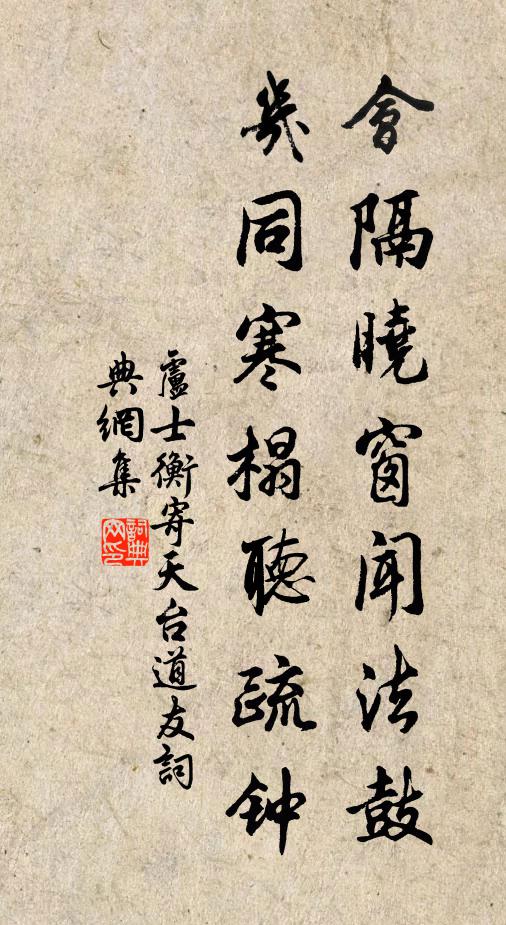 會隔曉窗闻法鼓
幾同寒榻聽疏钟
盧士衡寄天台道友詞
典網集
詞典网印